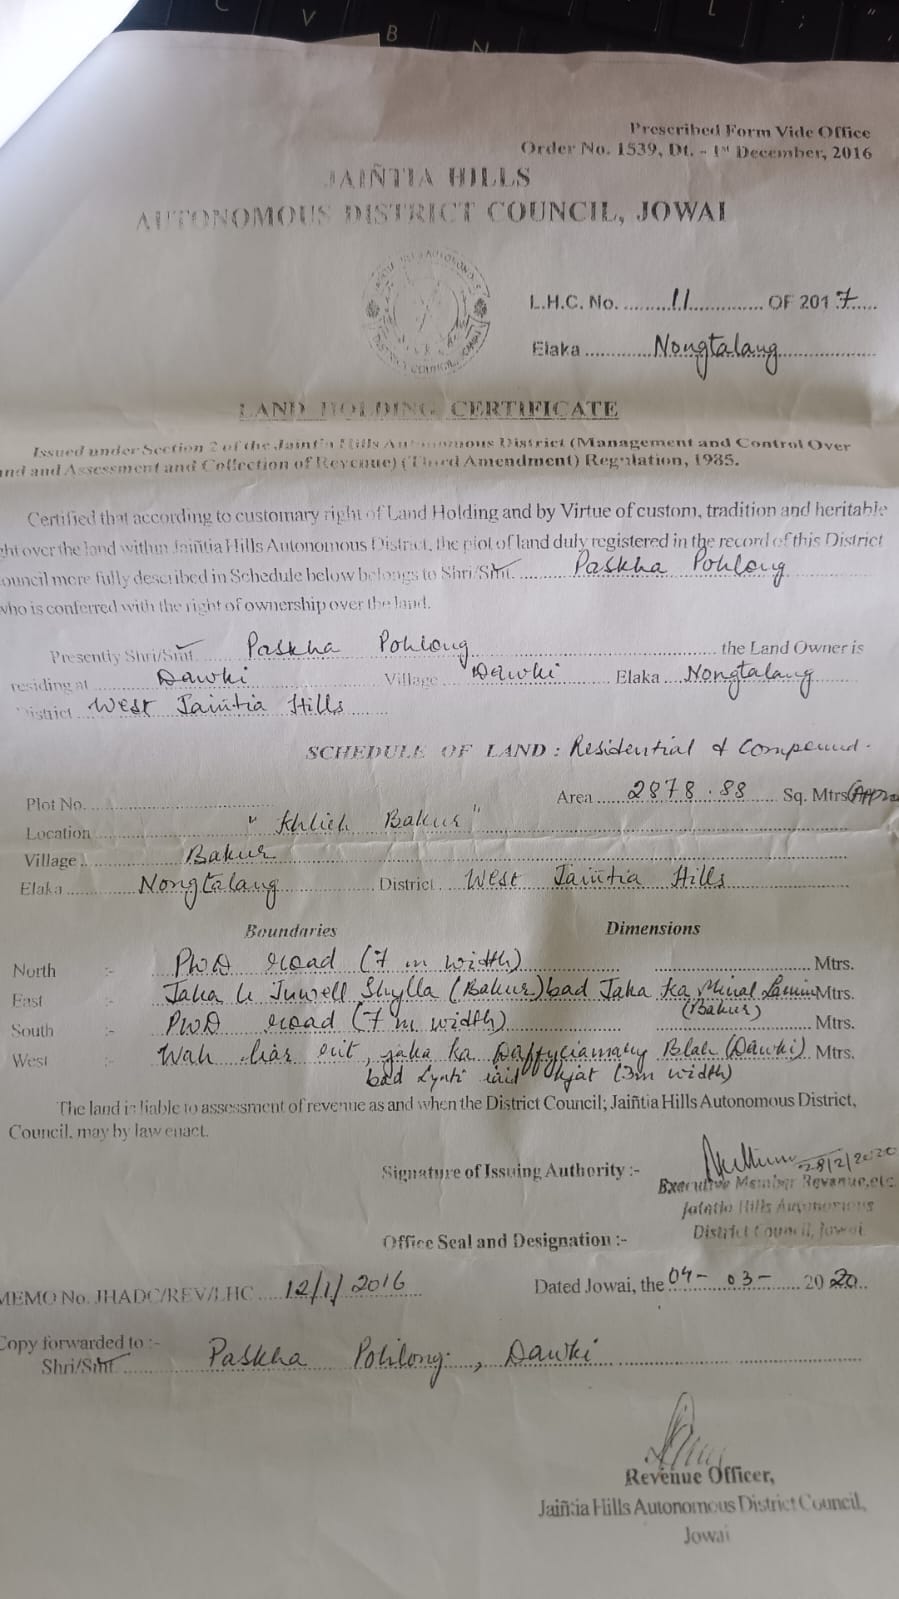 Prescribed Form Vide Office
Order No. 1539, Dt. - 1st December, 2016
JAIÑTIA HILLS
AUTONOMOUS DISTRICT COUNCIL, JOWAI
L.H.C. No. ......... 11 ............. OF 2017.....
Elaka ............ Nongtalang ...............
LAND HOLDING CERTIFICATE
Issued under Section 2 of the Jaintia Hills Autonomous District (Management and Control Over
and Assessment and Collection of Revenue) (Third Amendment) Regulation, 1985.
Certified that according to customary right of Land Holding and by Virtue of custom, tradition and heritable
over the land within Jaiñtia Hills Autonomous District, the plot of land duly registered in the record of this District
ouncil more fully described in Schedule below belongs to Shri/Smt. ......... Paskha Pohlong
who is conferred with the right of ownership over the land.
Presently Shri/Smt. Paskha Pohlong ............ the Land Owner is
residing at Dawki Village Dawki Elaka Nongtalang
District West Jaiñtia Hills
SCHEDULE OF LAND : Residential & Compound.
Plot No. ............... Area ..... 2878.88 ..... Sq. Mtrs
Location " Khlieh Bakur "
Village Bakur
Elaka Nongtalang District West Jaiñtia Hills
Boundaries Dimensions
North :- PWD road (7 m width) ............ Mtrs.
East :- Jaka u Juwell Shylla (Bakur) bad Jaka Ka Minal Lamin Mtrs.
(Bakur)
South :- PWD road (7 m width) ............ Mtrs.
West :- Wah , jaka ka Blah (Dawki) Mtrs.
bad Lynti iaid kjat (3m width)
The land is liable to assessment of revenue as and when the District Council; Jaiñtia Hills Autonomous District,
Council, may by law enact.
28/2/2020
Signature of Issuing Authority :-
Executive Member Revenue, etc.
Jaintia Hills Autonomous
District Council, Jowai
Office Seal and Designation :-
MEMO No. JHADC/REV/LHC .... 12/1/2016 Dated Jowai, the 04- 03- 2020
Copy forwarded to :-
Shri/Smt Paskha Pohlong , Dawki
Revenue Officer,
Jaiñtia Hills Autonomous District Council,
Jowai